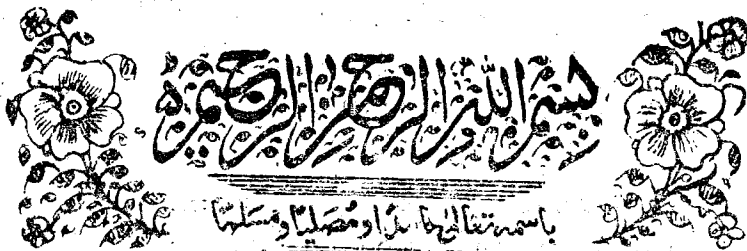 بسم اللہ الرحمن الرحیم ہ
باسمہ تعالیٰ حامدًا و مُصَلیًا و مسلمًا